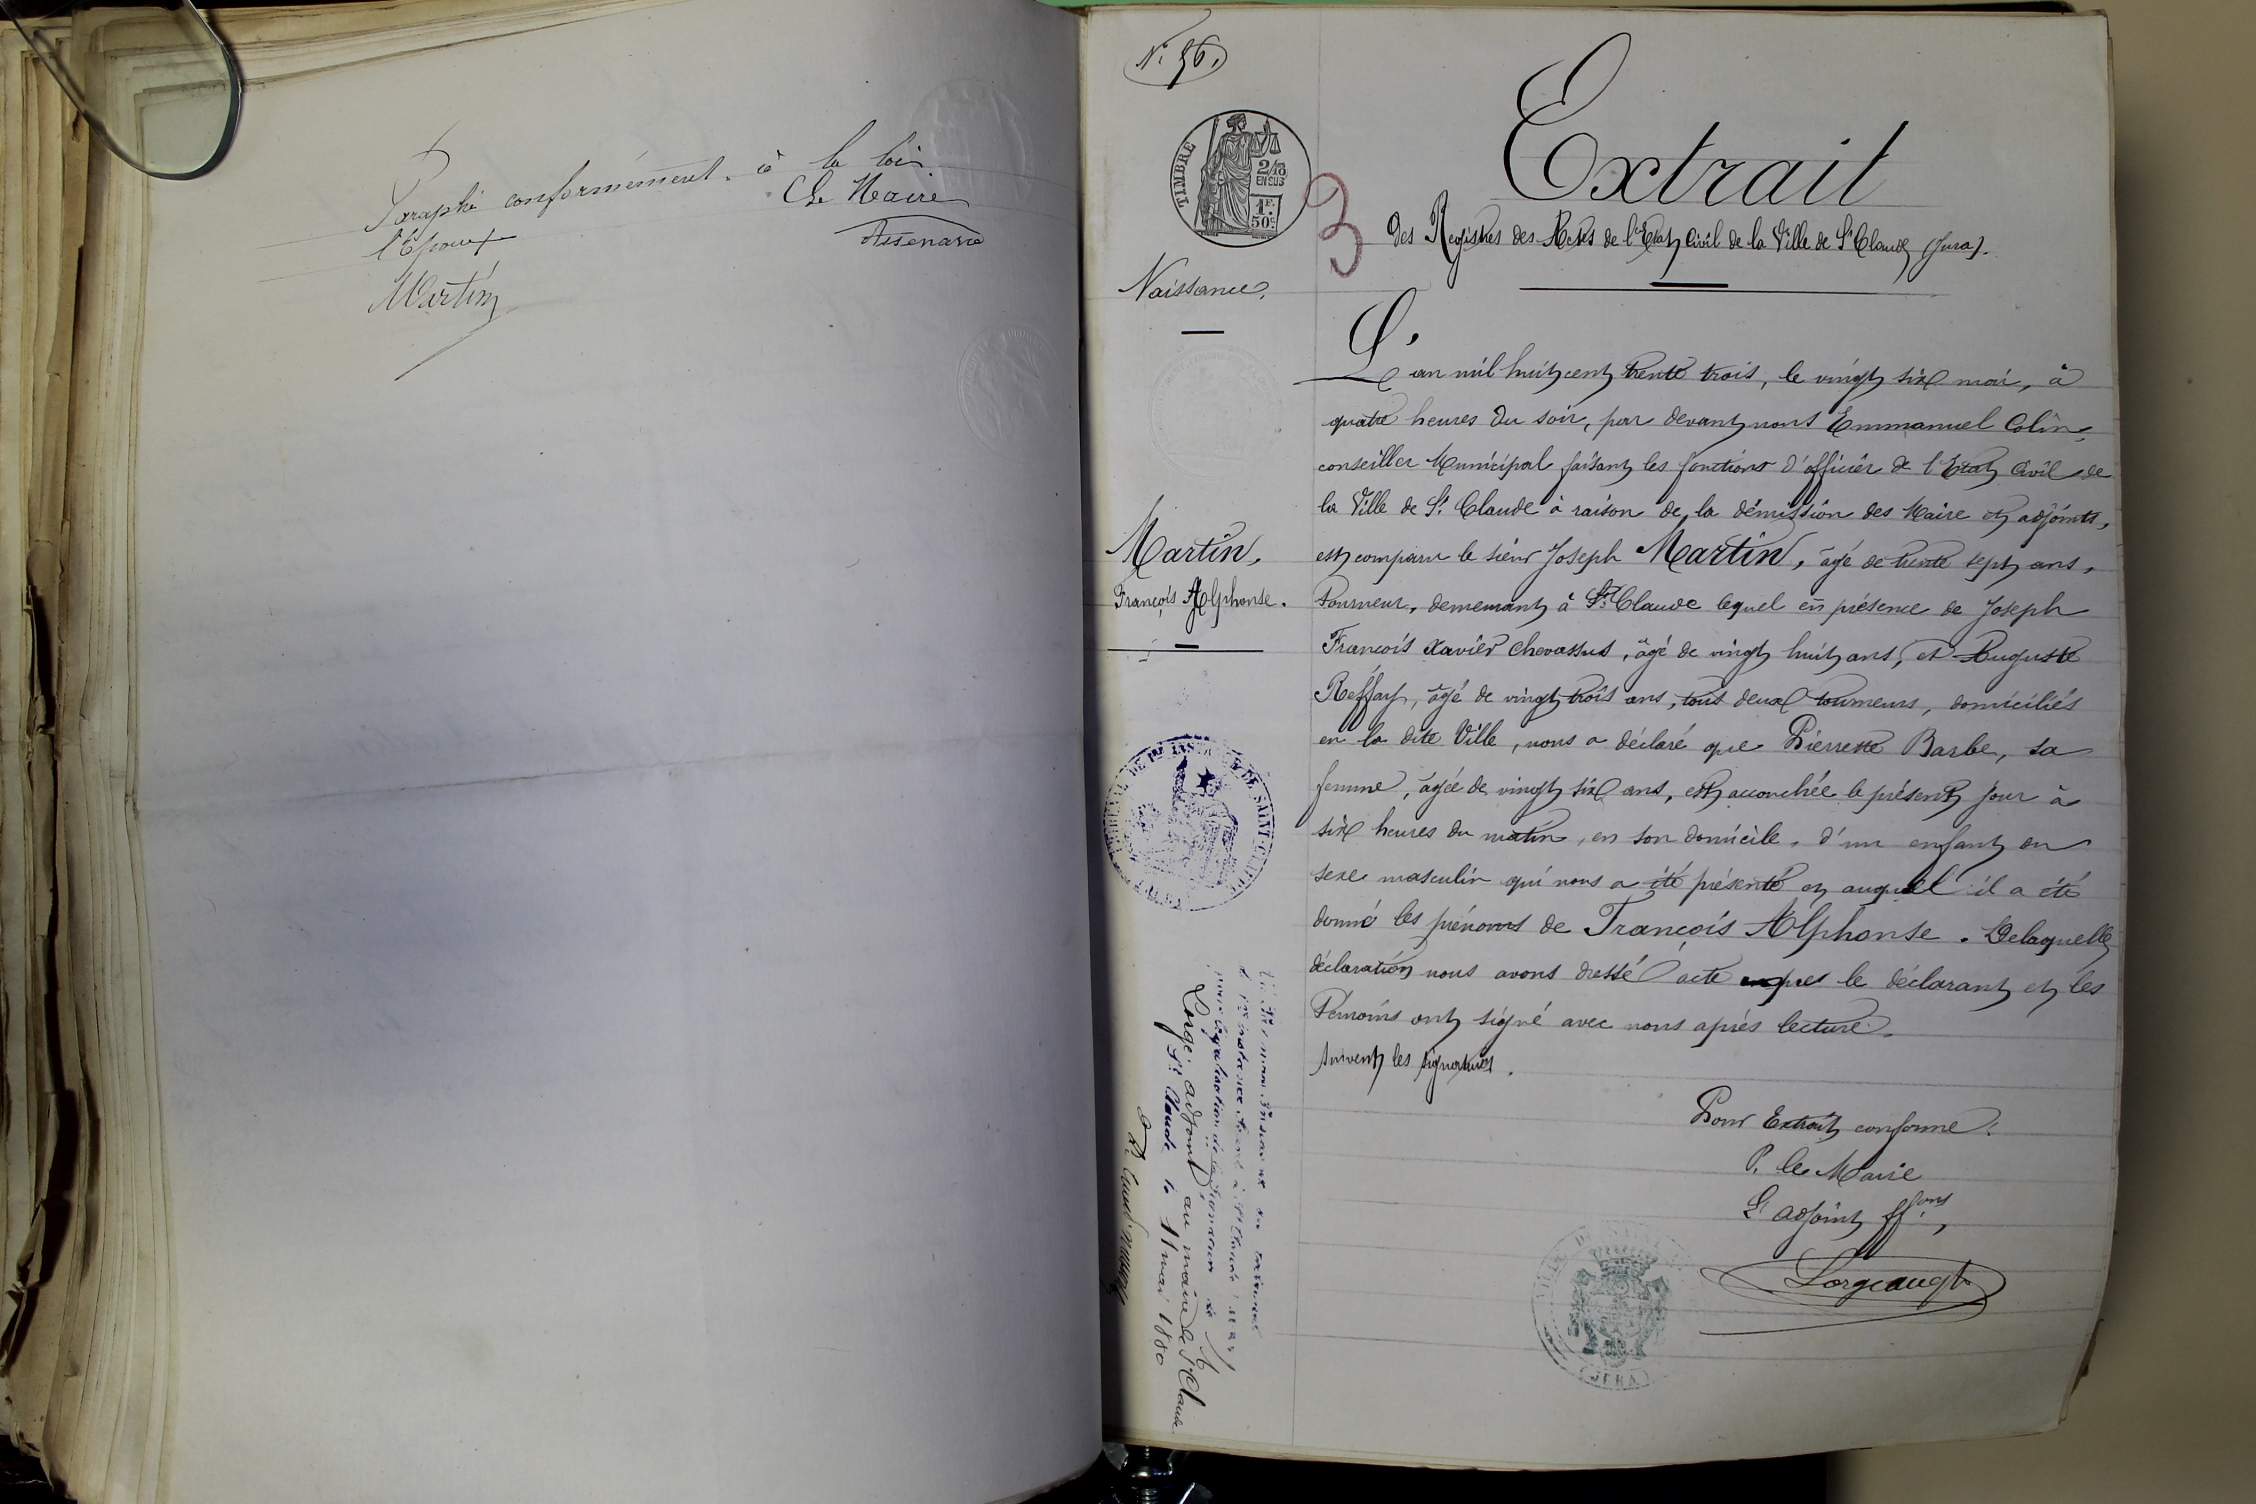 Paraphé conformément à la loi
Le Maire
l'Epoux
Martin
N° 56.
TIMBRE
2/10
EN SUS
1F.
50C.
3
Extrait
des Registres des Actes de l'Etat Civil de la Ville de St Claude (Jura).
Naissance.
L'an mil huit cent trente trois, le vingt six mai, à
quatre heures du soir, par devant nous Emmanuel Colin,
conseiller Municipal faisant les fonctions d'officier de l'Etat Civil de
la Ville de St. Claude à raison de la démission des Maire et adjoints,
Martin,
François Alphonse.
est comparu le sieur Joseph Martin, âgé de trente sept ans,
tourneur, demeurant à St. Claude lequel en présence de Joseph
François Xavier Chevassus, âgé de vingt huit ans, et Auguste
Reffay, âgé de vingt trois ans, tous deux tourneurs, domiciliés
en la dite Ville, nous a déclaré que Pierrette Barbe, sa
femme, âgée de vingt six ans, est accouchée le présent jour à
six heures du matin, en son domicile, d'un enfant du
sexe masculin qui nous a été présenté et auquel il a été
donné les prénoms de François Alphonse. Delaquelle
déclaration nous avons dressé acte que le déclarant et les
témoins ont signé avec nous après lecture.
Suivent les signatures.
Pour Extrait conforme:
P. le Maire
L'adjoint ff.ons,
TRIBUNAL DE 1RE INSTANCE DE SAINT-CLAUDE
légalisation de la signature de M
adjoint au maire de St Claude
St Claude le 11 mai 1880
VILLE DE
(JURA)